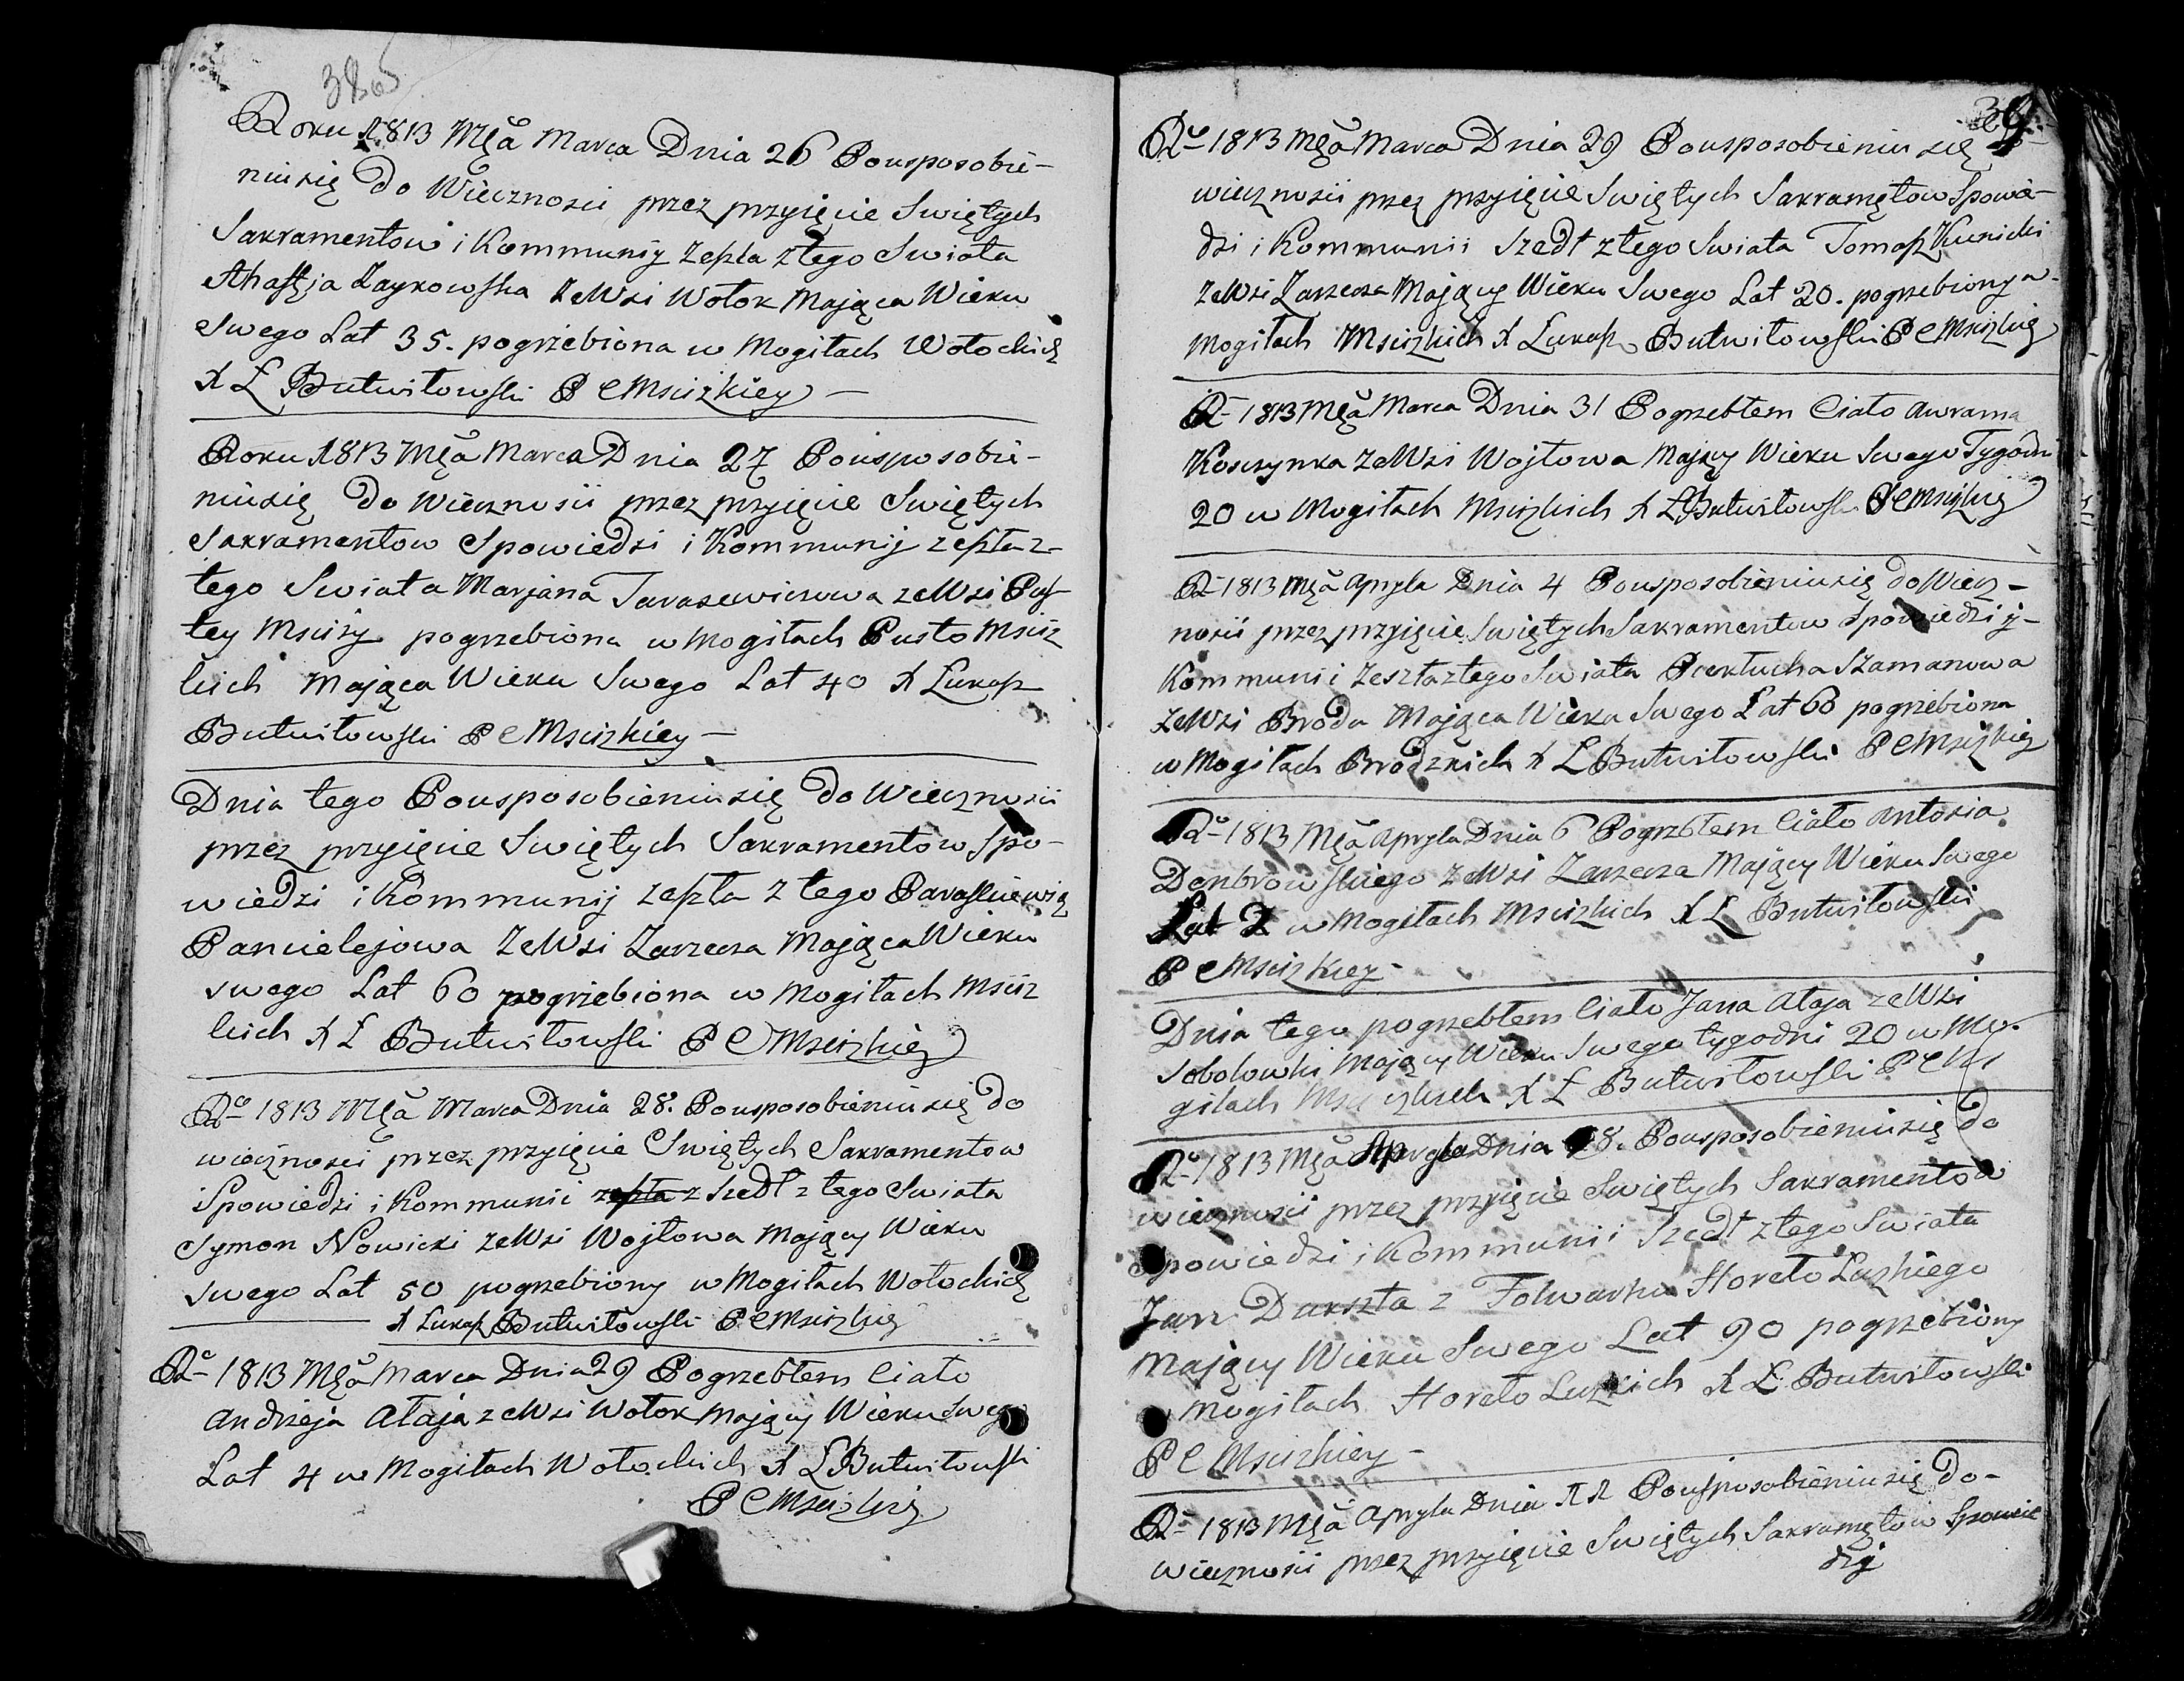 3865
Roku 1813 Mca Marca Dnia 26 Pousposobie-
niu się do Wieczności przez przyięcie Swiętych
Sakramentow i Kommunij Zeszła z tego Swiata
Ahafija Zaykowska ze Wsi Wołok Maiąca Wieku
Swego Lat 35. pogrzebiona w Mogiłach Wołockich
X Ł Butwiłowski P C Mscizkiey
Roku 1813 Mca Marca Dnia 27 Pousposobie-
niu się do Wiecznosii przez przyięcie Swiętych
Sakramentow Spowiedzi i Kommunij zeszła z-
tego Swiata Marjana Tarasewiczowa ze Wsi Pus-
tey Mscizy pogrzebiona w Mogiłach Pusto Msciz
kich Mająca Wieku Swego Lat 40 X Łukasz
Butwiłowski P C Mscizkiey
Dnia tego Pousposobieniu się do Wiecznosii
przez przyięcie Swiętych Sakramentow Spo-
wiedzi i Kommunij zeszła z tego Paraskiewia
Pancielejowa ze Wsi Zarzecza Mająca Wieku
swego Lat 60 pogrzebiona w Mogiłach Msciz
kich X Ł Butwiłowski P C Mscizkiey
Ro 1813 Mca Marca Dnia 28. Pousposobieniu się do
wieczności przez przyięcie Swiętych Sakramentow
Spowiedzi i Kommunii zeszła z szedł z tego Swiata
Symon Nowicki ze Wsi Wojtowa Mający Wieku
swego Lat 50 pogrzebiony w Mogiłach Wołockich
X Łukasz Butwiłowski P C Mscizkiey
Ro 1813 Mca Marca Dnia 29 Pogrzebłem Ciało
Andrzeja Ałaja ze Wsi Wołok Mający Wieku Swego
Lat 4 w Mogiłach Wołockich X Ł Butwiłowski
P C Mscizkiey
39
Ro 1813 Mca Marca Dnia 29 Pousposobieniu się
wiecznosii przez przyięcie Swiętych Sakramętow Spowie-
dzi i Kommunii szedł z tego Swiata Tomasz Kunicki
ze Wsi Zarzecza Mający Wieku Swego Lat 20. pogrzebiony w
Mogiłach Mscizkich X Łukasz Butwiłowski P C Mscizkiey
Ro 1813 Mca Marca Dnia 31 Pogrzebłem Ciało Awrama
Koszynka ze Wsi Wojtowa Mający Wieku Swego Tygodni
20 w Mogiłach Mscizkich X Ł Butwiłowski P C Mscizkiey
Ro 1813 Mca Apryla Dnia 4 Pousposobieniu się do Wiecz-
nosii przez przyięcie Swiętych Sakramentow Spowiedzi y-
Kommunii Zeszła z tego Swiata Szamanowa
ze Wsi Broda Mająca Wieku Swego Lat 60 pogrzebiona
w Mogiłach Brodzkich X Ł Butwiłowski P C Mscizkiey
Ro 1813 Mca Apryla Dnia 6 Pogrzebłem Ciało Antosia
Denbrowskiego ze Wsi Zarzecza Mający Wieku Swego
Lat 2 w Mogiłach Mscizkich X Ł Butwiłowski
P C Mscizkiey
Dnia tego pogrzebłem Ciało Jana Ałaja ze Wsi
Sobolowki Mający Wieku Swego tygodni 20 w Mo-
giłach Mscizkich X Ł Butwiłowski P C M
Ro 1813 Mca Apryla Dnia 8. Pousposobieniu się do
wiecznosii przez przyięcie Swiętych Sakramentow
Spowiedzi i Kommunii szedł z tego Swiata
Jan Darszta z Folwarku Horeło Łuzkiego
Mający Wieku Swego Lat 90 pogrzebiony
w Mogiłach Horeło Łuzkich X Ł Butwiłowski
P C Mscizkiey
Ro 1813 Mca Apryla Dnia 11 Pousposobieniu się do-
wiecznosii przez przyięcie Swiętych Sakramętow Spowie
dzi